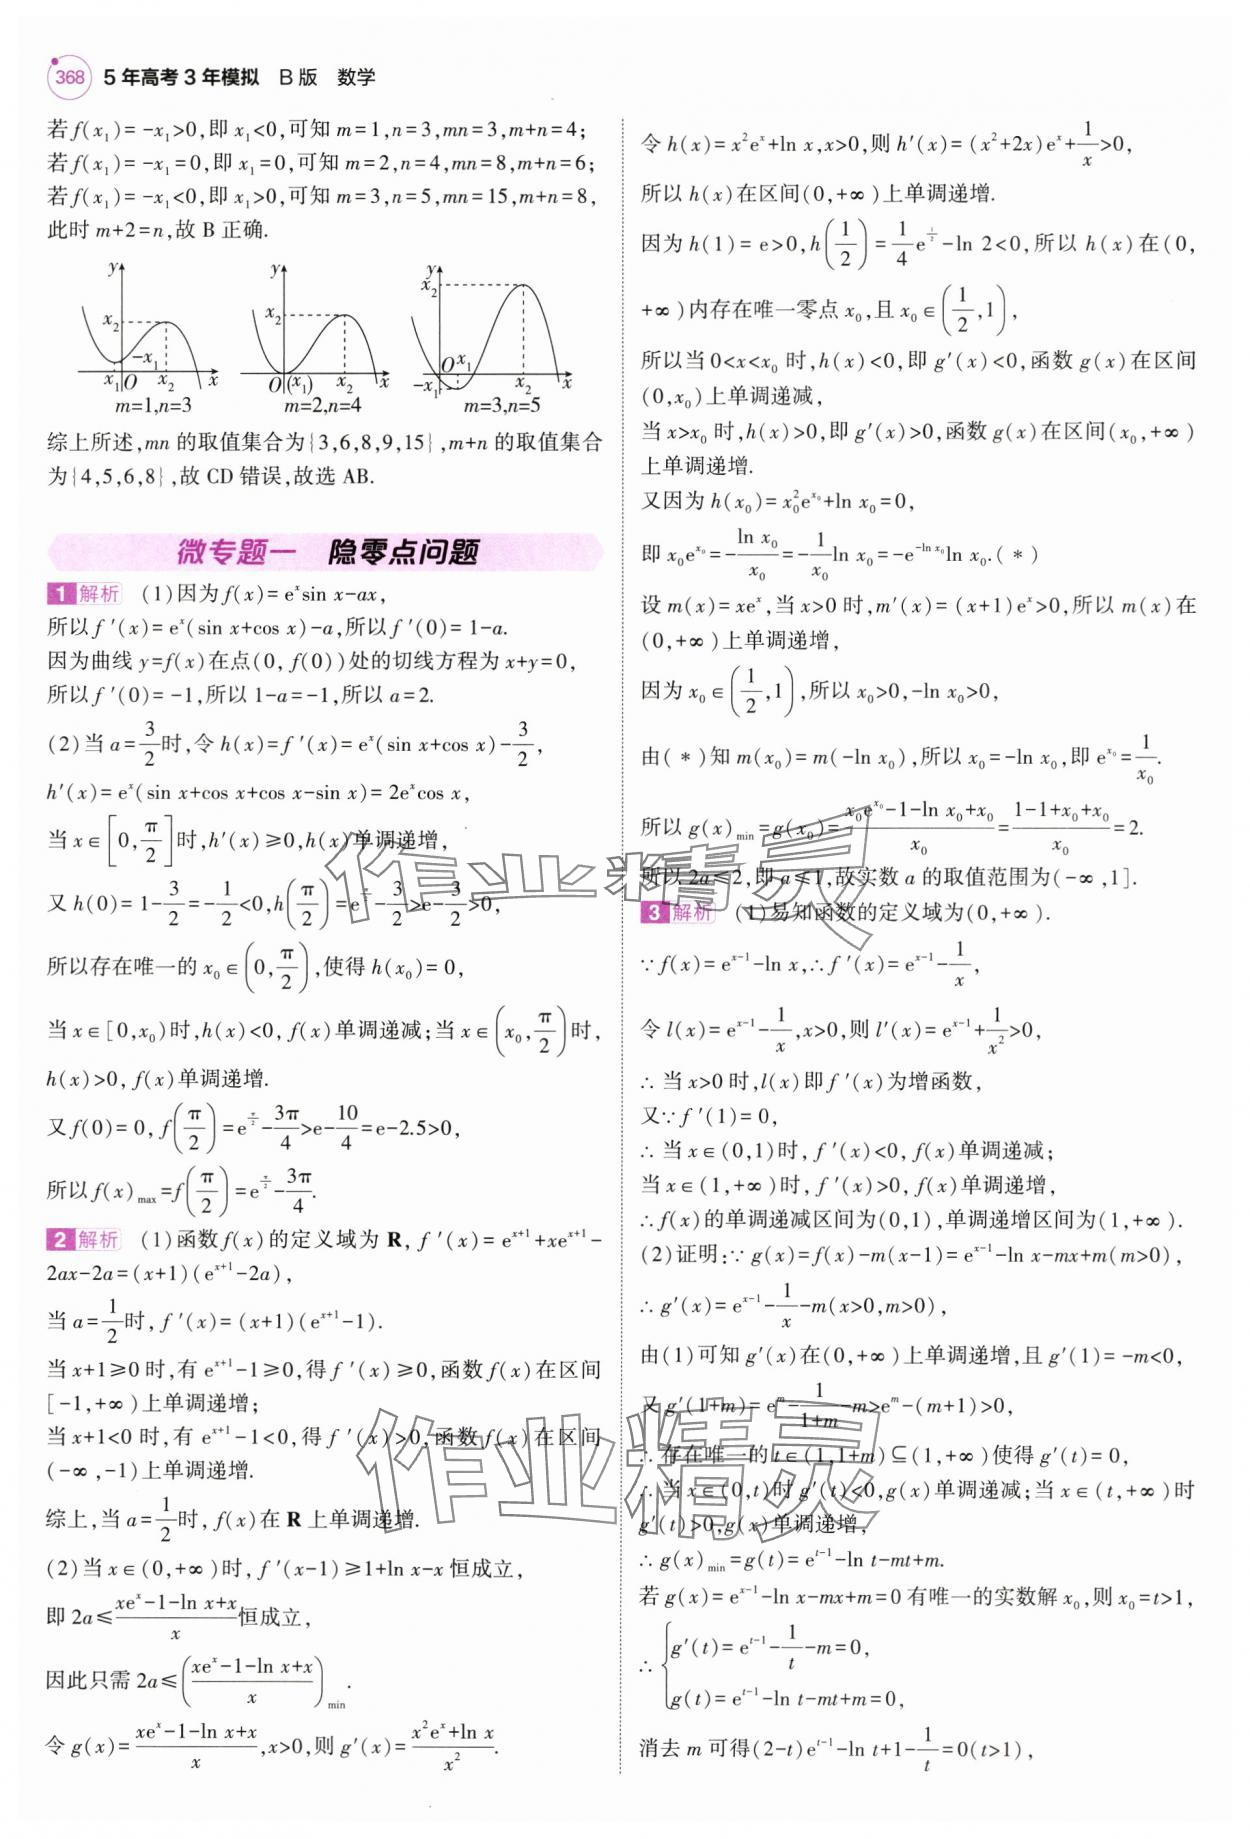 368 5年高考3年模拟 B版 数学
若f(x₁)=-x₁>0,即x₁<0,可知m=1,n=3,mn=3,m+n=4;
若f(x₁)=-x₁=0,即x₁=0,可知m=2,n=4,mn=8,m+n=6;
若f(x₁)=-x₁<0,即x₁>0,可知m=3,n=5,mn=15,m+n=8,
此时m+2=n,故B正确.
y x₂ -x₁ x₁ O x₂ x
m=1,n=3
y x₂ O (x₁) x₂ x
m=2,n=4
y x₂ O x₁ -x₁ x₂ x
m=3,n=5
综上所述,mn的取值集合为{3,6,8,9,15},m+n的取值集合
为{4,5,6,8},故CD错误,故选AB.
微专题一 隐零点问题
1 解析 (1)因为f(x)=eˣsin x-ax,
所以f′(x)=eˣ(sin x+cos x)-a,所以f′(0)=1-a.
因为曲线y=f(x)在点(0,f(0))处的切线方程为x+y=0,
所以f′(0)=-1,所以1-a=-1,所以a=2.
(2)当a=3/2时,令h(x)=f′(x)=eˣ(sin x+cos x)-3/2,
h′(x)=eˣ(sin x+cos x+cos x-sin x)=2eˣcos x,
当x∈[0,π/2]时,h′(x)≥0,h(x)单调递增,
又h(0)=1-3/2=-1/2<0,h(π/2)=e^(π/2)-3/2>e-3/2>0,
所以存在唯一的x₀∈(0,π/2),使得h(x₀)=0,
当x∈[0,x₀)时,h(x)<0,f(x)单调递减;当x∈(x₀,π/2)时,
h(x)>0,f(x)单调递增.
又f(0)=0,f(π/2)=e^(π/2)-3π/4>e-10/4=e-2.5>0,
所以f(x)max=f(π/2)=e^(π/2)-3π/4.
2 解析 (1)函数f(x)的定义域为R,f′(x)=e^(x+1)+xe^(x+1)-
2ax-2a=(x+1)(e^(x+1)-2a),
当a=1/2时,f′(x)=(x+1)(e^(x+1)-1).
当x+1≥0时,有e^(x+1)-1≥0,得f′(x)≥0,函数f(x)在区间
[-1,+∞)上单调递增;
当x+1<0时,有e^(x+1)-1<0,得f′(x)>0,函数f(x)在区间
(-∞,-1)上单调递增.
综上,当a=1/2时,f(x)在R上单调递增.
(2)当x∈(0,+∞)时,f′(x-1)≥1+ln x-x恒成立,
即2a≤(xeˣ-1-ln x+x)/x恒成立,
因此只需2a≤((xeˣ-1-ln x+x)/x)min.
令g(x)=(xeˣ-1-ln x+x)/x,x>0,则g′(x)=(x²eˣ+ln x)/x².
令h(x)=x²eˣ+ln x,x>0,则h′(x)=(x²+2x)eˣ+1/x>0,
所以h(x)在区间(0,+∞)上单调递增.
因为h(1)=e>0,h(1/2)=1/4e^(1/2)-ln 2<0,所以h(x)在(0,
+∞)内存在唯一零点x₀,且x₀∈(1/2,1),
所以当0<x<x₀时,h(x)<0,即g′(x)<0,函数g(x)在区间
(0,x₀)上单调递减,
当x>x₀时,h(x)>0,即g′(x)>0,函数g(x)在区间(x₀,+∞)
上单调递增.
又因为h(x₀)=x₀²e^(x₀)+ln x₀=0,
即x₀e^(x₀)=-ln x₀/x₀=-1/x₀ ln x₀=-e^(-ln x₀)ln x₀.(*)
设m(x)=xeˣ,当x>0时,m′(x)=(x+1)eˣ>0,所以m(x)在
(0,+∞)上单调递增,
因为x₀∈(1/2,1),所以x₀>0,-ln x₀>0,
由(*)知m(x₀)=m(-ln x₀),所以x₀=-ln x₀,即e^(x₀)=1/x₀.
所以g(x)min=g(x₀)=(x₀e^(x₀)-1-ln x₀+x₀)/x₀=(1-1+x₀+x₀)/x₀=2.
所以2a≤2,即a≤1,故实数a的取值范围为(-∞,1].
3 解析 (1)易知函数的定义域为(0,+∞).
∵f(x)=e^(x-1)-ln x,∴f′(x)=e^(x-1)-1/x,
令l(x)=e^(x-1)-1/x,x>0,则l′(x)=e^(x-1)+1/x²>0,
∴当x>0时,l(x)即f′(x)为增函数,
又∵f′(1)=0,
∴当x∈(0,1)时,f′(x)<0,f(x)单调递减;
当x∈(1,+∞)时,f′(x)>0,f(x)单调递增,
∴f(x)的单调递减区间为(0,1),单调递增区间为(1,+∞).
(2)证明:∵g(x)=f(x)-m(x-1)=e^(x-1)-ln x-mx+m(m>0),
∴g′(x)=e^(x-1)-1/x-m(x>0,m>0),
由(1)可知g′(x)在(0,+∞)上单调递增,且g′(1)=-m<0,
又g′(1+m)=e^m-1/(1+m)-m>e^m-(m+1)>0,
∴存在唯一的t∈(1,1+m)⊆(1,+∞)使得g′(t)=0,
∴当x∈(0,t)时g′(t)<0,g(x)单调递减;当x∈(t,+∞)时
g′(t)>0,g(x)单调递增,
∴g(x)min=g(t)=e^(t-1)-ln t-mt+m.
若g(x)=e^(x-1)-ln x-mx+m=0有唯一的实数解x₀,则x₀=t>1,
∴{g′(t)=e^(t-1)-1/t-m=0,
g(t)=e^(t-1)-ln t-mt+m=0,
消去m可得(2-t)e^(t-1)-ln t+1-1/t=0(t>1),
作业精灵
作业精灵